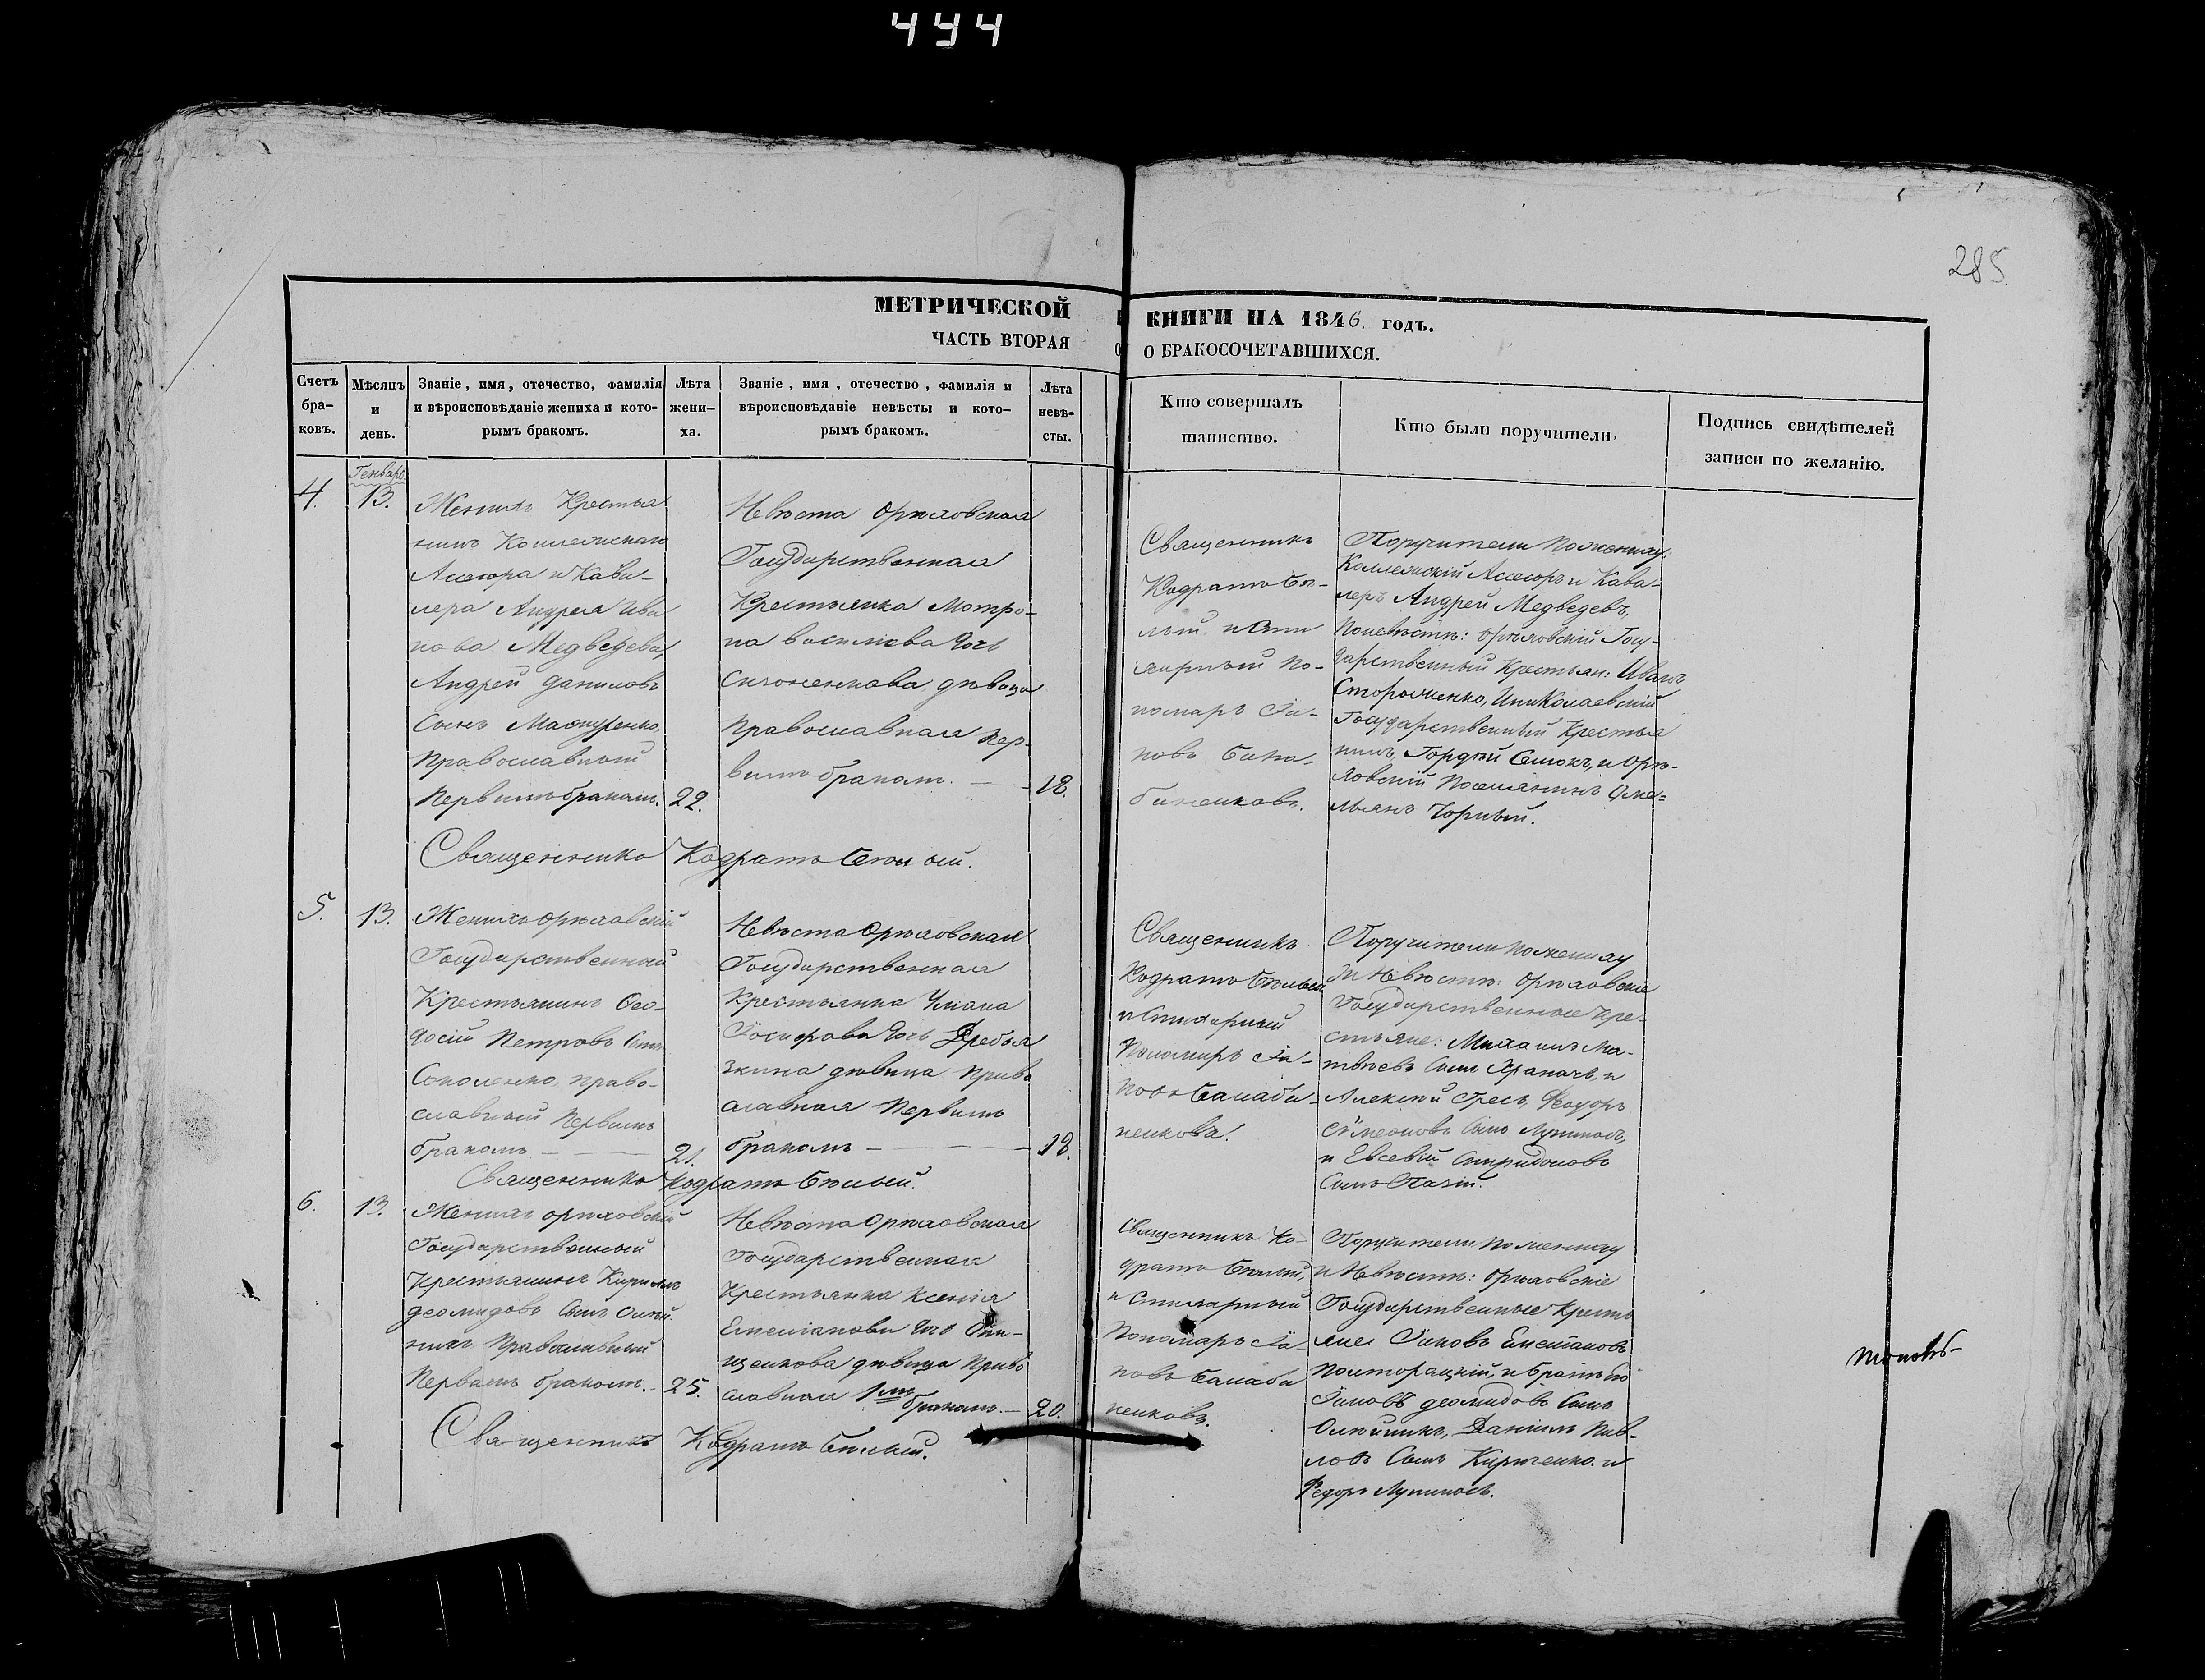 494
285
МЕТРИЧЕСКОЙ КНИГИ НА 1846. годъ.
ЧАСТЬ ВТОРАЯ О БРАКОСОЧЕТАВШИХСЯ.
Счетъ бра-ковъ.
Мѣсяцъ и день.
Званіе, имя, отечество, фамилія
и вѣроисповѣданіе жениха и кото-
рымъ бракомъ.
Лѣта жени-ха.
Званіе, имя, отечество, фамилія и
вѣроисповѣданіе невѣсты и кото-
рымъ бракомъ.
Лѣта невѣ-сты.
Кто совершалъ
таинство.
Кто были поручители
Подпись свидѣтелей
записи по желанію.
4.
Генварь
13.
Женихъ Крестья
нинъ Коллежскаго
Асесора и Кава-
лера Андрея Ива
нова Медведева,
Андрей Даниловъ
Сынъ
Православный
Первымъ бракомъ.
22.
Невѣста Орѣховская
Государственная
Крестьянка Мотро-
на Василіева дочь
дѣвица
Православная Пер-
вымъ бракомъ.
18.
Священникъ
Кодратъ Бѣ-
лый и Сти
харный По-
номарь Іа-
ковъ Бала-
баненковъ.
Поручители по жениху:
Коллежскій Асесоръ и Кава-
леръ Андрей Медведевъ,
По невѣстѣ: Орѣховскій Госу-
дарственный Крестьян: Иванъ
Стороженко, Николаевскій
Государственный Крестья
нинъ, Гордѣй и Орѣ-
ховскій Поселянинъ Оме-
льянъ Чорный.
Священникъ Кодратъ Бѣлый.
5.
13.
Женихъ Орѣховскій
Государственный
Крестьянинъ Ѳео-
досій Петровъ Сынъ
Соколенко, право-
славный Первымъ
бракомъ
21.
Невѣста Орѣховская
Государственная
Крестьянка Уліана
Іосифова дочь
дѣвица Право
славная Первымъ
бракомъ
18.
Священникъ
Кодратъ Бѣлый
и Стихарный
Пономарь Іа-
ковъ Балаба-
ненковъ.
Поручители по жениху
и Невѣстѣ: Орѣховскіе
Государственные Кре-
стьяне: Михаилъ Ма-
твѣевъ Сынъ и
Алексѣй Гресь, Феодоръ
Сумеоновъ Сынъ Лупиносъ,
и Евсевій Спиридоновъ
Сынъ
Священникъ Кодратъ Бѣлый.
6.
13.
Женихъ Орѣховскій
Государственный
Крестьянинъ Кирилъ
Деомидовъ Сынъ Олѣй
никъ Православный
Первымъ бракомъ.
25.
Невѣста Орѣховская
Государственная
Крестьянка Ксенія
Емеліанова дочь
дѣвица Право
славная 1мъ бракомъ.
20.
Священникъ Ко-
дратъ Бѣлый,
и Стихарный
Пономарь Іа-
ковъ Балаба
ненковъ.
Поручители по жениху
и Невѣстѣ: Орѣховскіе
Государственные Кресть
яне Іаковъ Емеліановъ
Полторацкій, и братъ его
Іаковъ Деомидовъ Сынъ
Олѣйникъ, Даніилъ Пав-
ловъ Сынъ и
Федоръ Лупиносъ.
Священникъ Кодратъ Бѣлый.